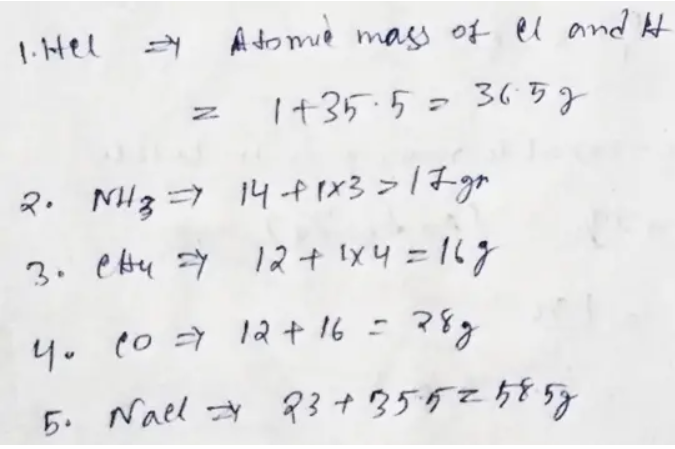 1. HCl ⇒ Atomic mass of Cl and H
= 1+35.5 = 36.5g
2. NH3 ⇒ 14+1x3 = 17gr
3. CH4 ⇒ 12+1x4 = 16g
4. CO ⇒ 12+16 = 28g
5. NaCl ⇒ 23+35.5 = 58.5g